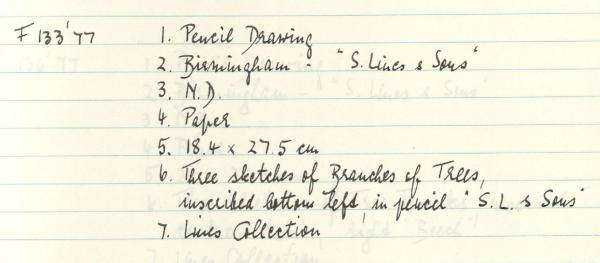 F 133'77 1. Pencil Drawing
2. Birmingham - "S. Lines & Sons"
3. N.D.
4. Paper
5. 18.4 x 27.5 cm
6. Three sketches of Branches of Trees,
inscribed bottom left, in pencil "S.L. & Sons"
7. Lines Collection